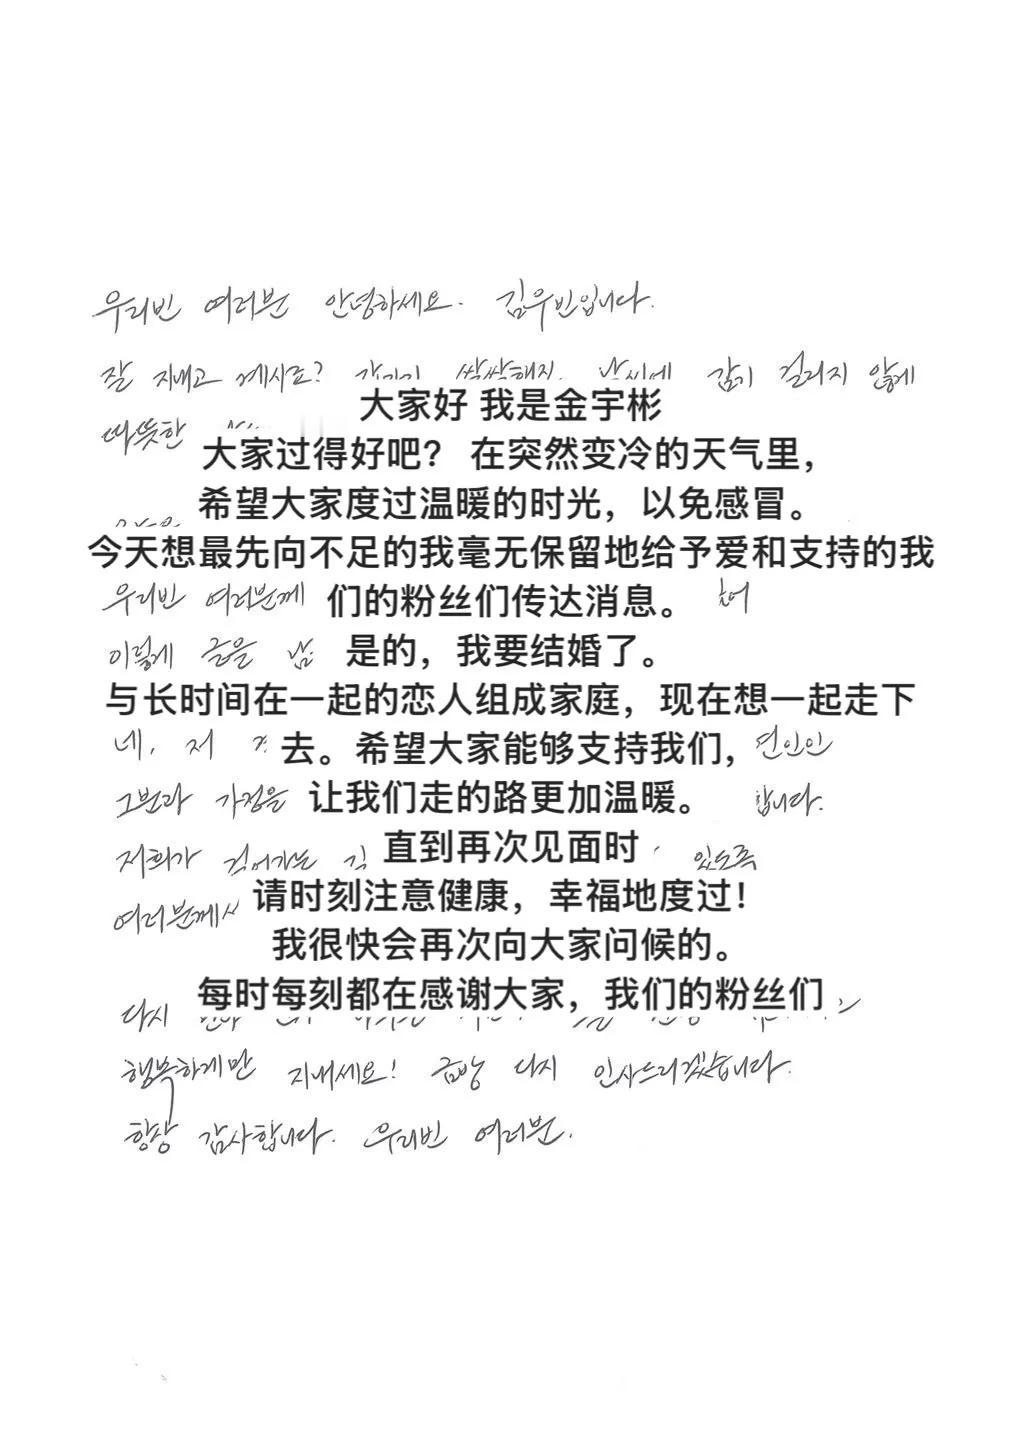 우리빈 여러분 안녕하세요. 김우빈입니다.
잘 지내고 계시죠? 갑자기 쌀쌀해진 날씨에 감기 걸리지 않게
大家好 我是金宇彬
따뜻한
大家过得好吧？ 在突然变冷的天气里，
希望大家度过温暖的时光，以免感冒。
今天想最先向不足的我毫无保留地给予爱和支持的我
우리빈 여러분께
们的粉丝们传达消息。
이렇게 글을 남
是的，我要结婚了。
与长时间在一起的恋人组成家庭，现在想一起走下
네, 저
去。希望大家能够支持我们，
연인인
그분과 가정을
让我们走的路更加温暖。
합니다.
저희가 걸어가는 길
直到再次见面时
있도록
여러분께서
请时刻注意健康，幸福地度过！
我很快会再次向大家问候的。
每时每刻都在感谢大家，我们的粉丝们
다시
행복하게만 지내세요! 금방 다시 인사드리겠습니다.
항상 감사합니다. 우리빈 여러분.